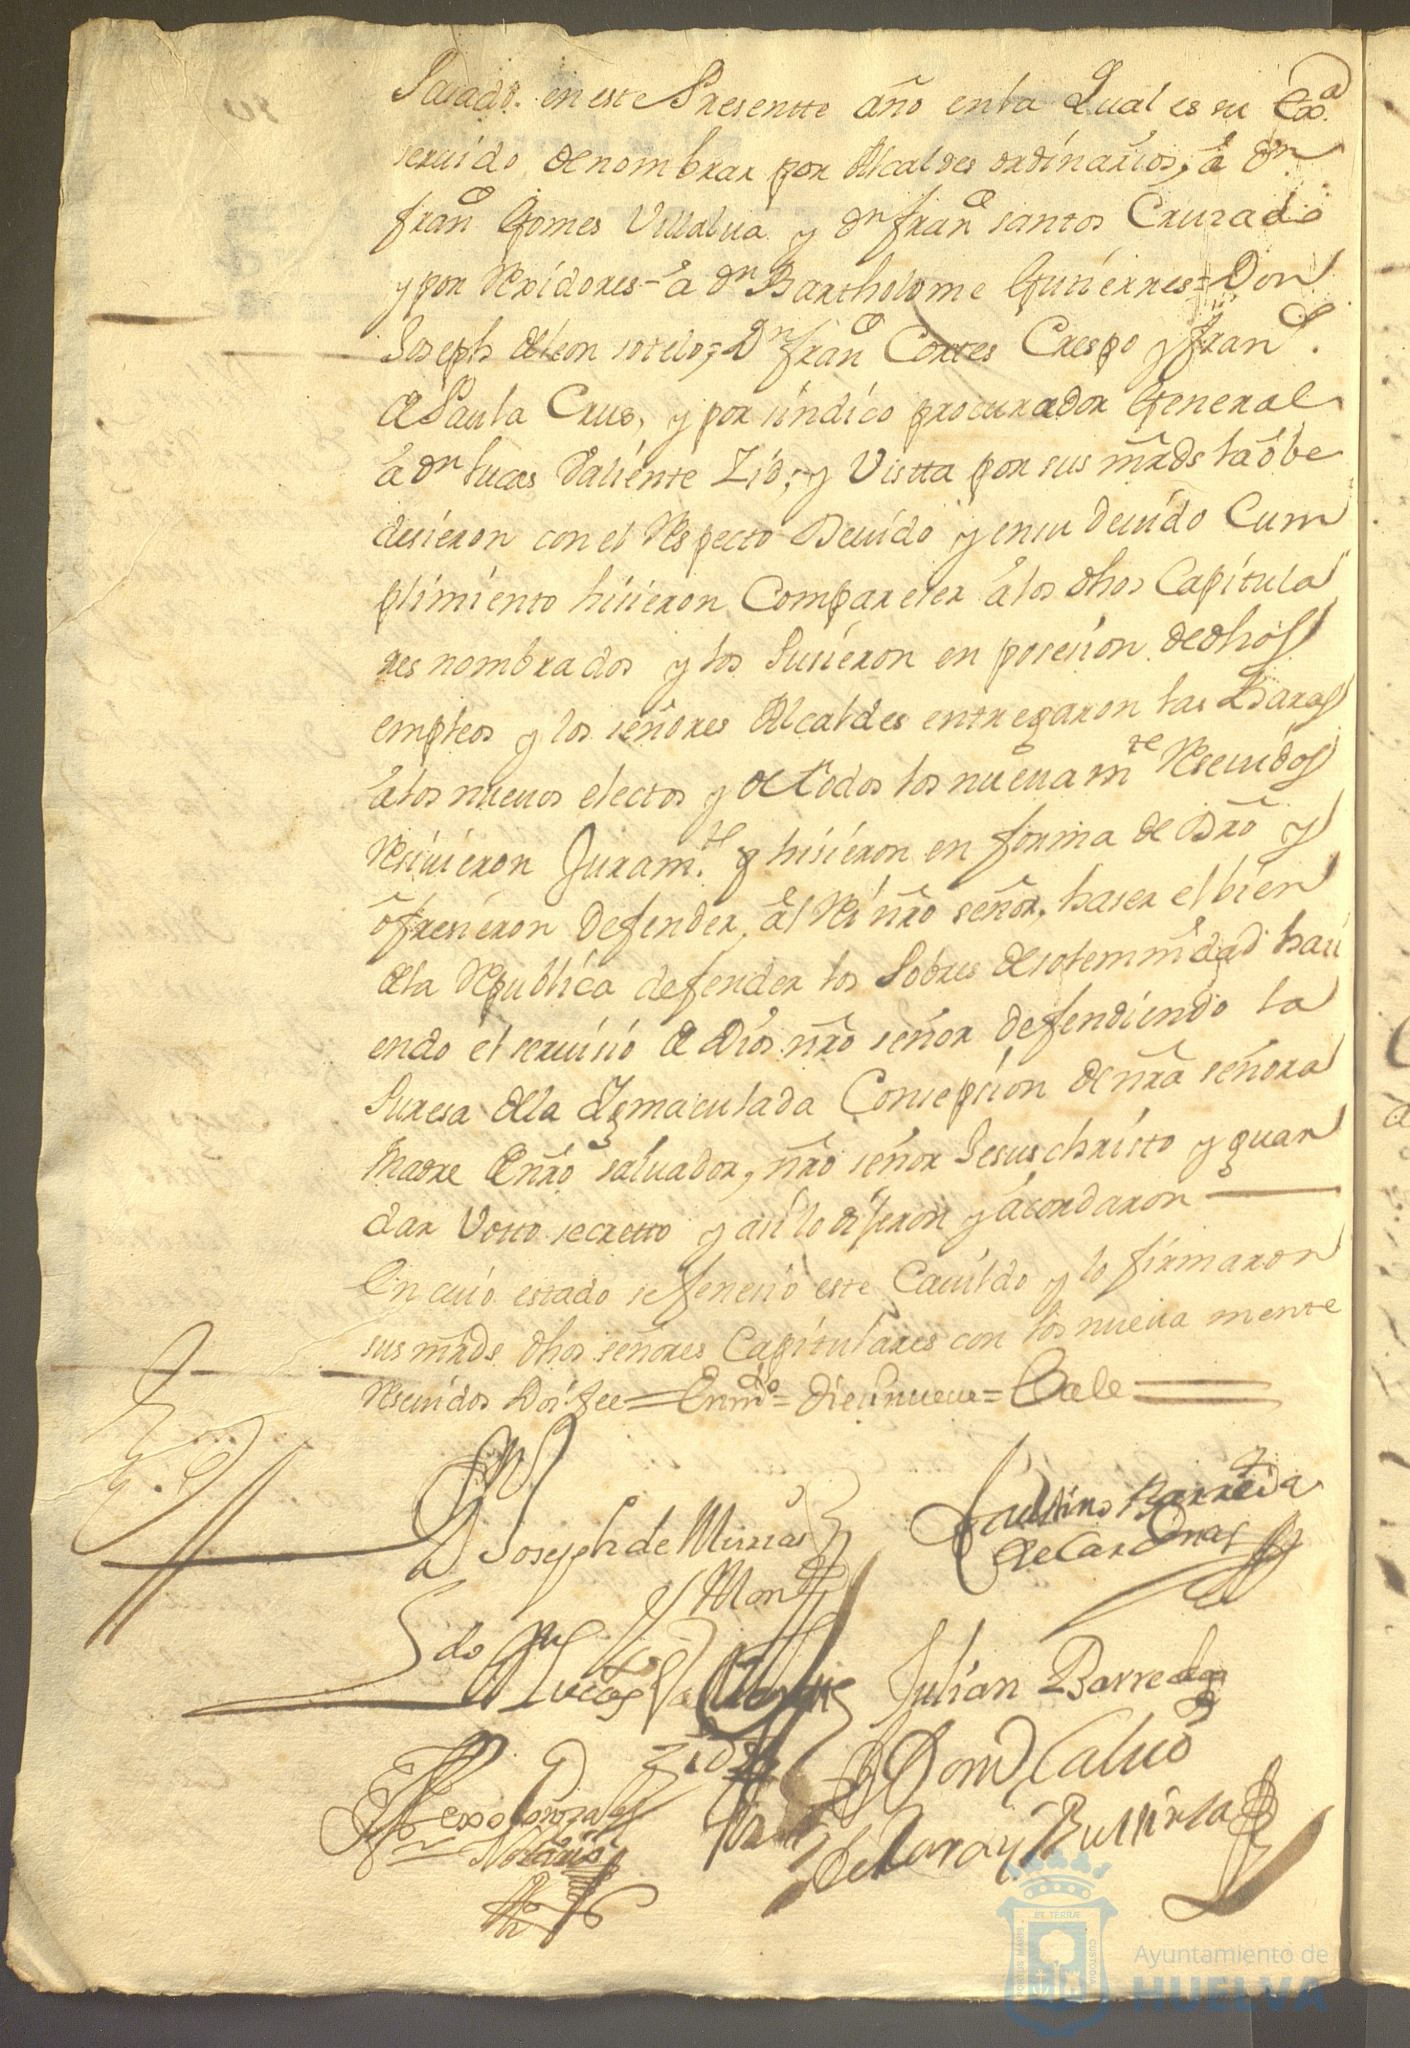 Pasado en este Presentte año en la Qual es su Exª
seruido de nombrar por Alcaldes ordinarios, a Dn
franco Gomes Villalua y Dn franco santos Cruzado
y por Rexidores = a Dn Bartholome Gutierres = Don
Joseph de leon sotelo, Dn franco Cortes Crespo y franco
de Santa Crus, y por sindico procurador General
a Dn lucas Valiente Zid, y Vistta por sus mrds la obe
desieron con el Respecto Deuido y en su deuido Cum
plimiento hisieron Compareser a los dhos Capitula
res nombrados y los pusieron en posesion de dhos
empleos y los señores Alcaldes entregaron las Baras
a los nueuos electos y de todos los nueuamte Reseuidos
Resiuieron Juramto y hisieron en forma de Dro y
ofresieron defender al Rei nro señor, haser el bien
de la Republica defender los Pobres de solemnidad hasi
endo el seruisio de Dios nro señor defendiendo la
Puresa de la Ynmaculada Consepsion de nra señora
Madre de nro saluador, nro señor Jesuschristo y guar
dar Votto secretto y asi lo dijeron y acordaron
En cuio estado se fenesio este Cauildo y lo firmaron
sus mrds dhos señores Capitulares con los nueua mente
Reseuidos Doi fee = Enmdo = Diesinueue = Vale
Dn Joseph de Missas
y Mon
Faustino Barreda
de Cardenas
Sdo Dn Lucas Valiente
Zid
Julian Barreda
Domo Caluo
de lara y Bussinza
Notario
Ayuntamiento de
HUELVA